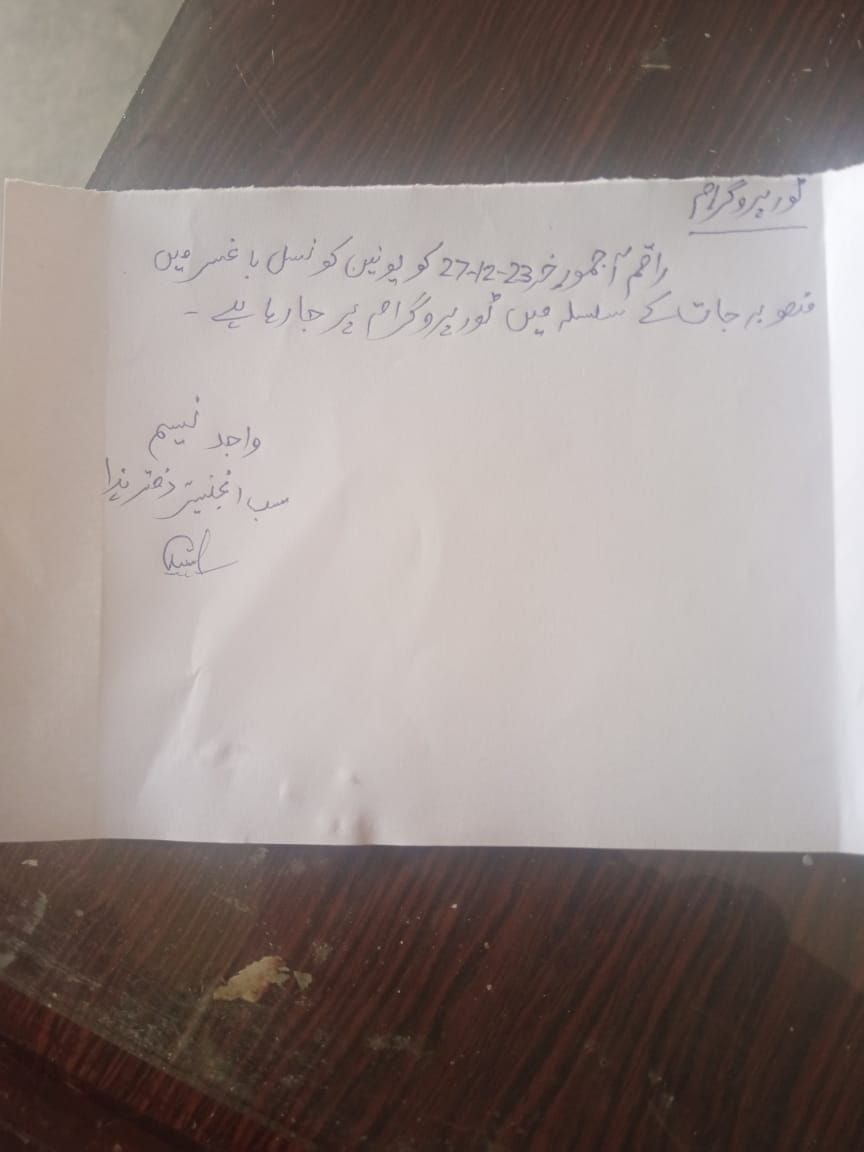 ٹور پروگرام
راقم آج مورخہ 27-12-23 کو یونین کونسل باغسر میں
منصوبہ جات کے سلسلہ میں ٹور پروگرام پر جا رہا ہے ۔
واجد نسیم
سب انجنیئر دفتر ہذا